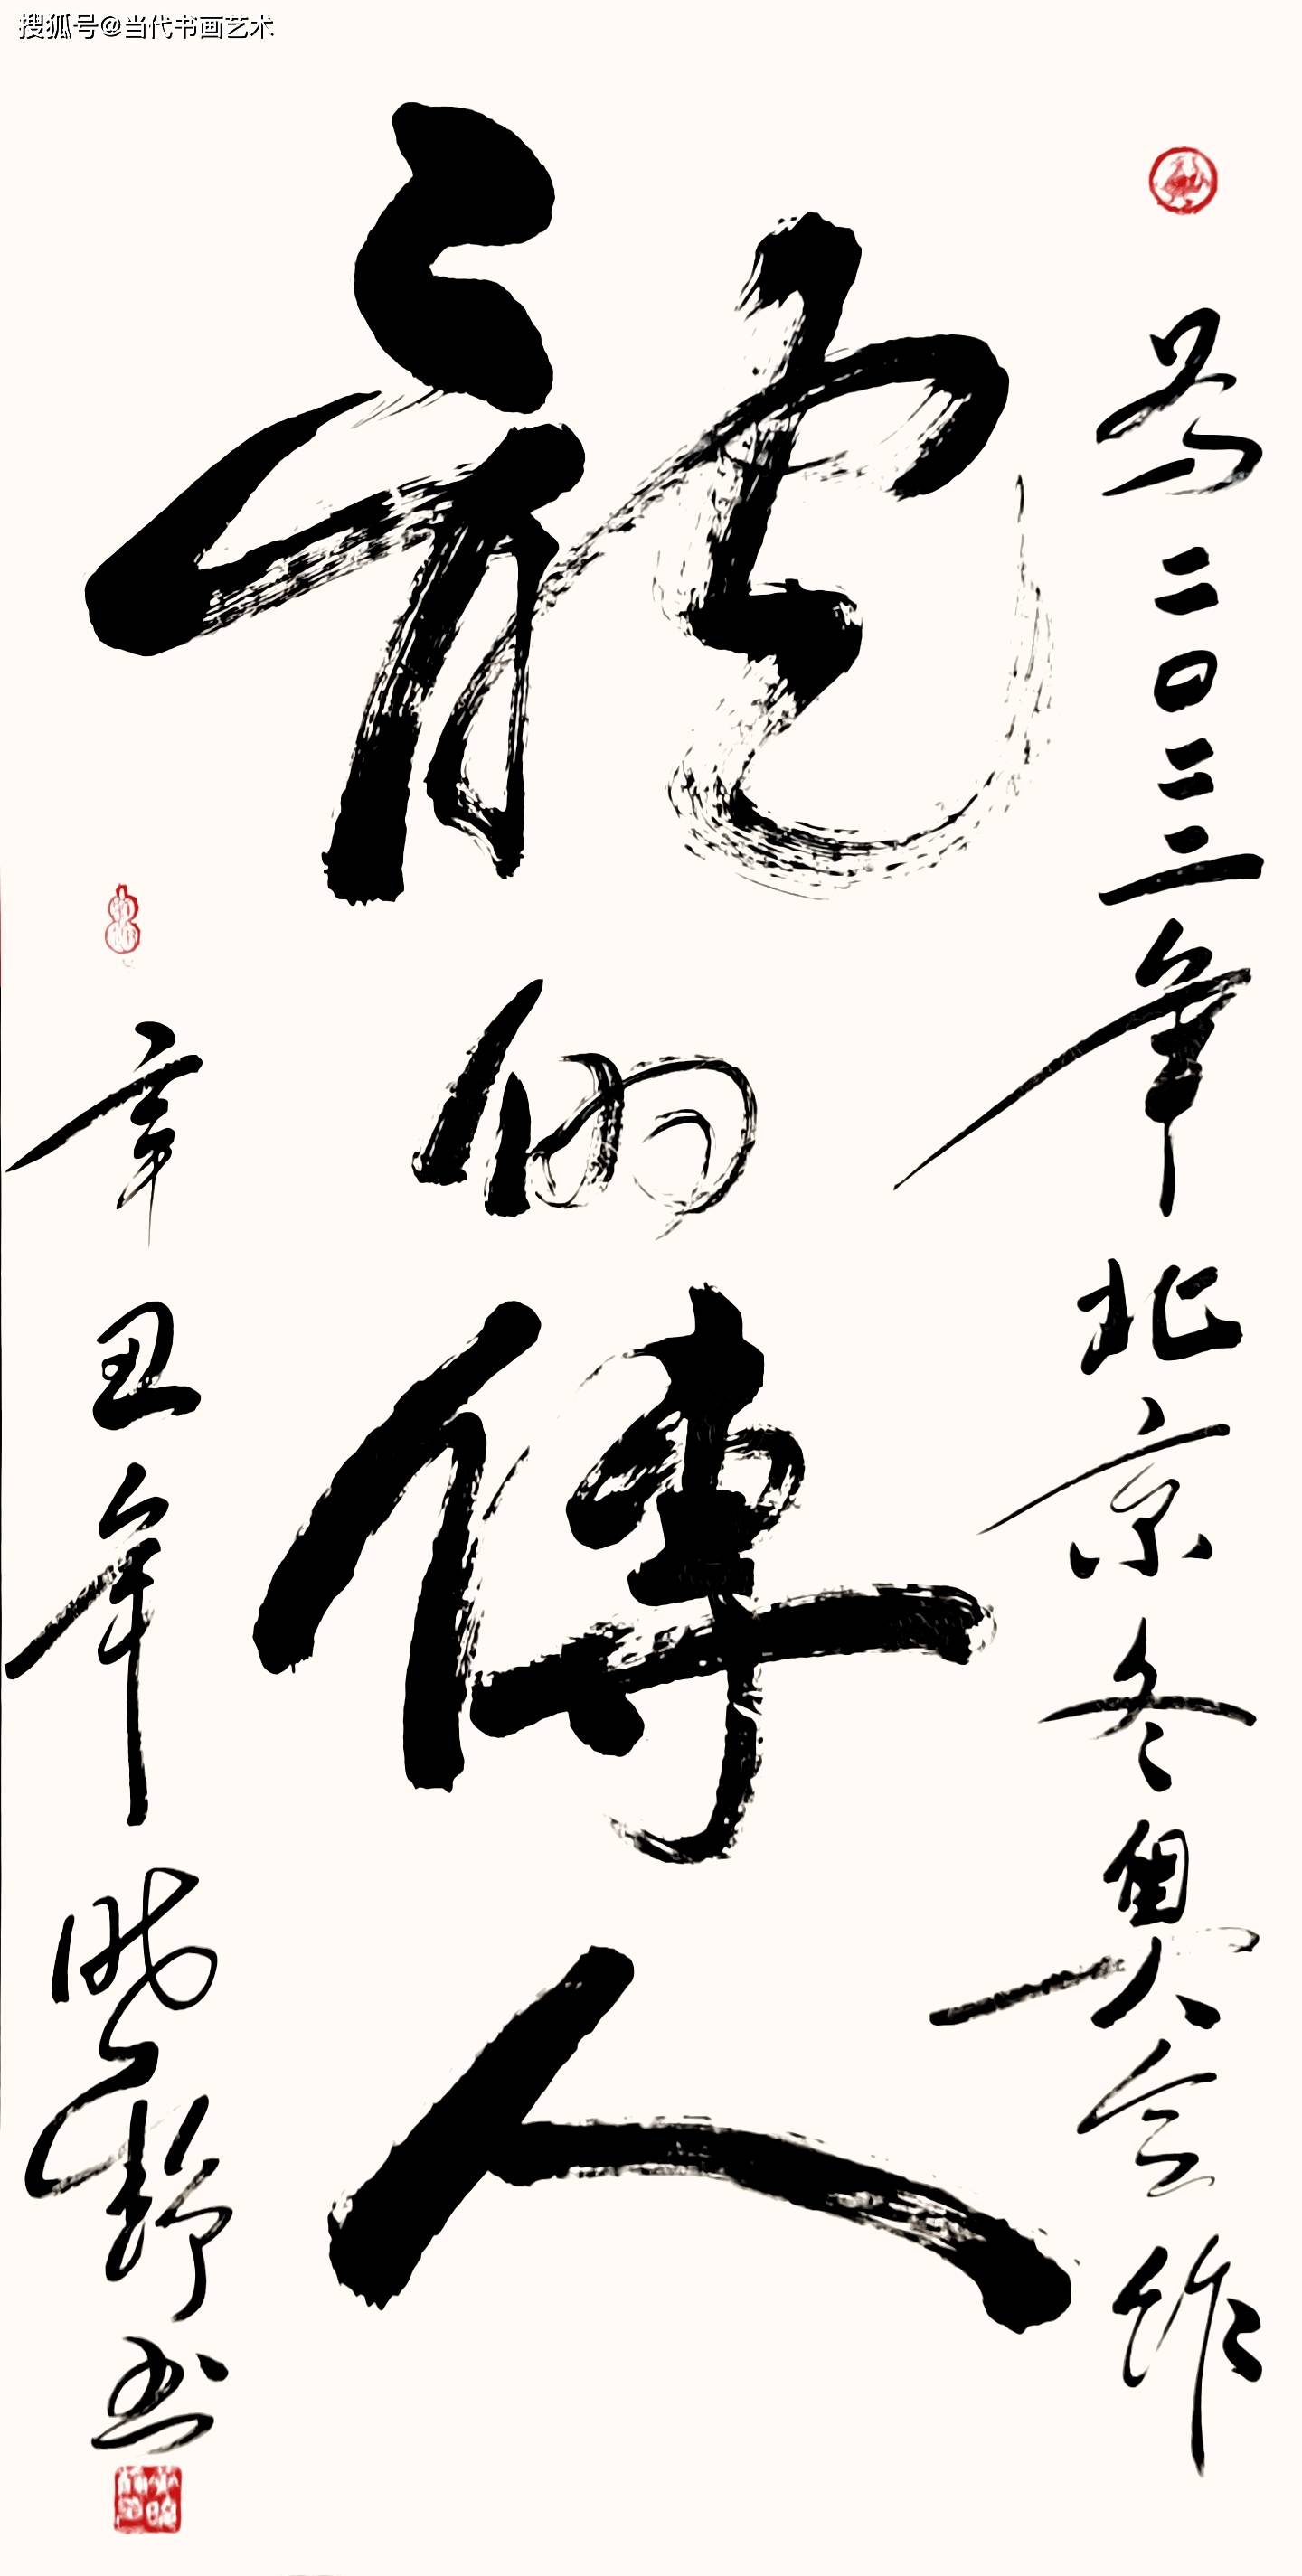 搜狐号@当代书画艺术
为二〇二二年北京冬奥会作
龍的傳人
辛丑年晓静书